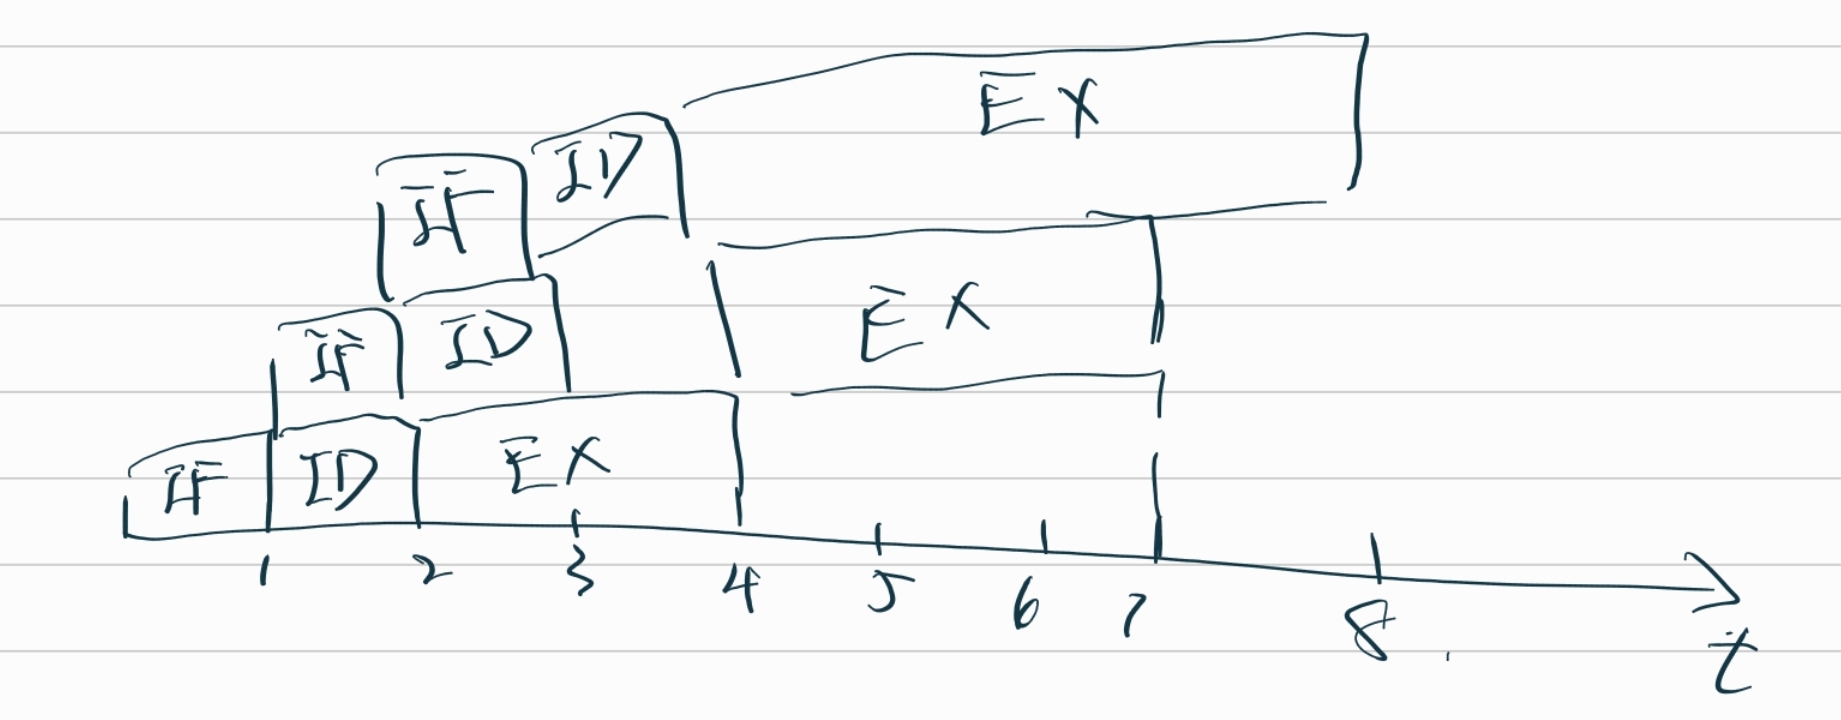 EX
IF ID
EX
IF ID
IF ID EX
1 2 3 4 5 6 7 8
t